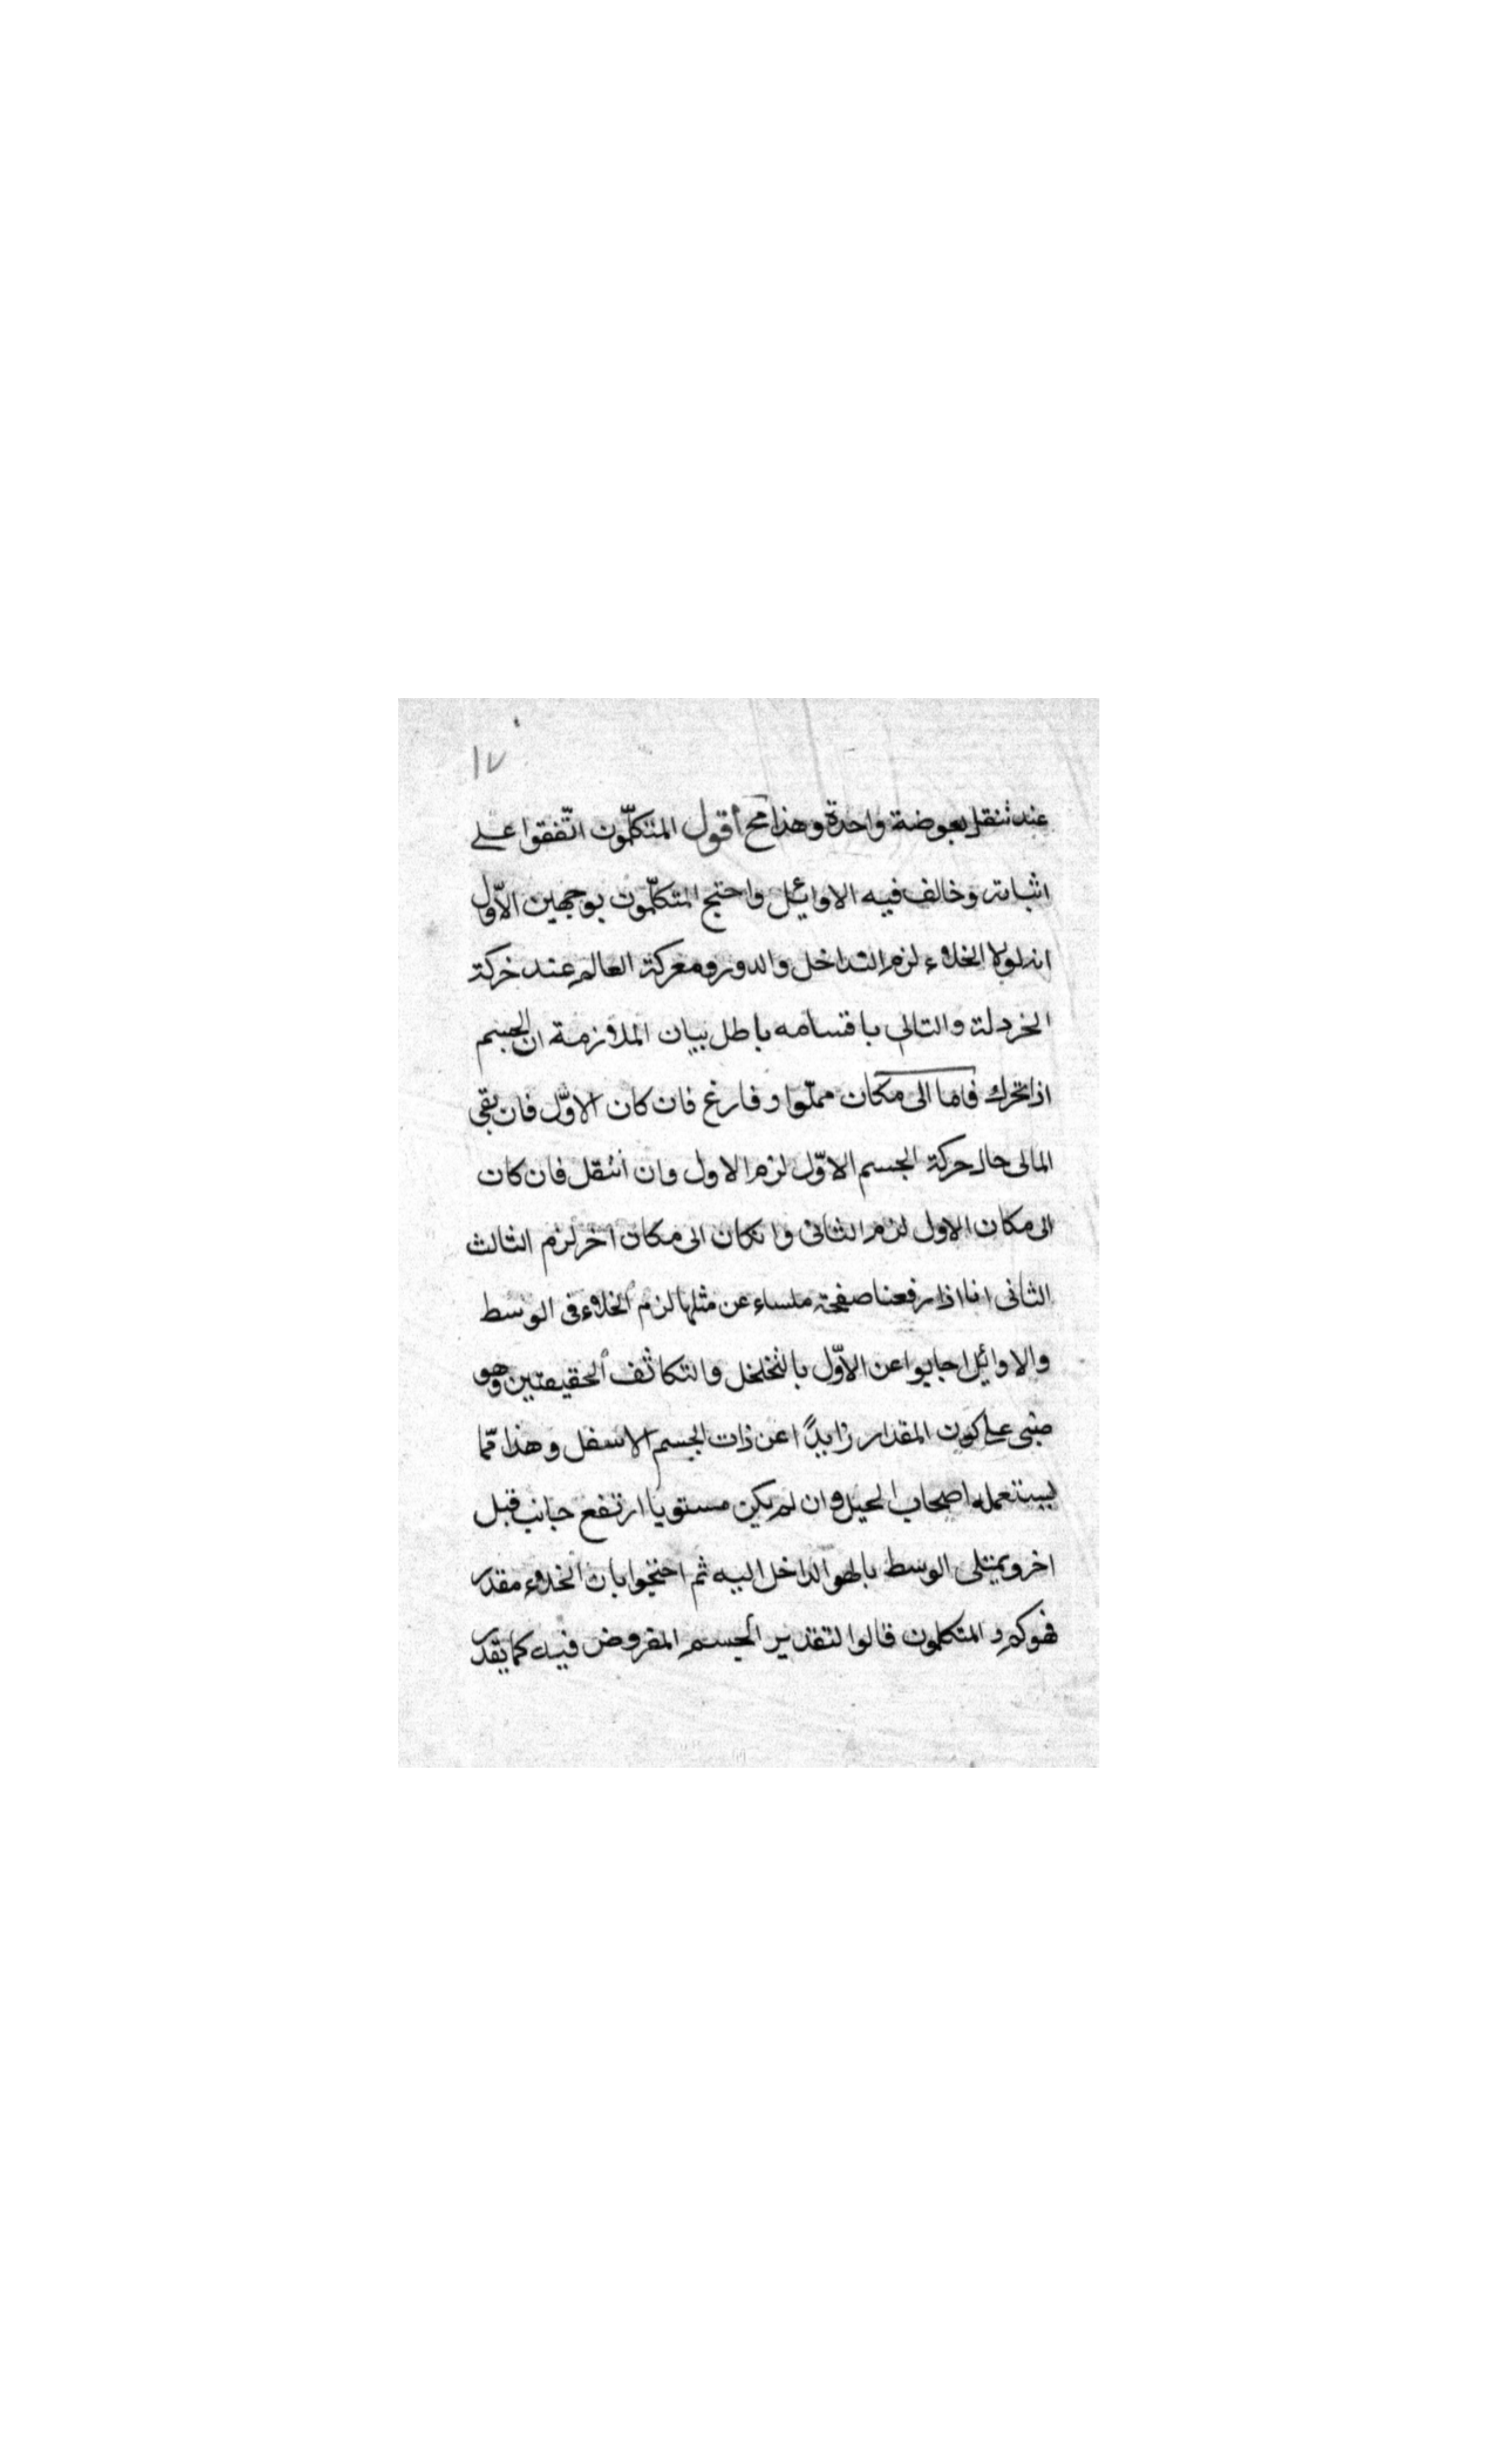 ١٧
عند تنقل بعوضة واحدة وهذا مح أقول المتكلّمون اتّفقوا على
اثباته وخالف فيه الاوائل واحتج المتكلّمون بوجهين الاوّل
انه لولا الخلاء لزم التداخل والدور ومعركة العالم عند خركة
الخردلة والتالى باقسامه باطل بيان الملازمة ان الجسم
اذا تحرك فاما الى مكان مملّوا وفارغ فان كان الاوّل فان بقى
المالى حال حركة الجسم الاوّل لزم الاول وان انتقل فان كان
الى مكان الاول لزم الثانى وانكان الى مكان اخر لزم الثالث
الثانى انا اذا رفعنا صفحة ملساء عن مثلها لزم الخلاء فى الوسط
والاوائل اجابوا عن الاوّل بالتخلخل والتكاثف الحقيقتين وهو
مبنى على كون المقدار زايدًا عن ذات الجسم الاسفل وهذا ممّا
يستعمله اصحاب الحيل وان لم يكن مستويا ارتفع جانب قبل
اخر ويمتلى الوسط بالهوا لداخل اليه ثم احتجوا بان الخلاء مقدر
فهوكم والمتكلمون قالوا لتقدير الجسم المفروض فيه كما يقدر